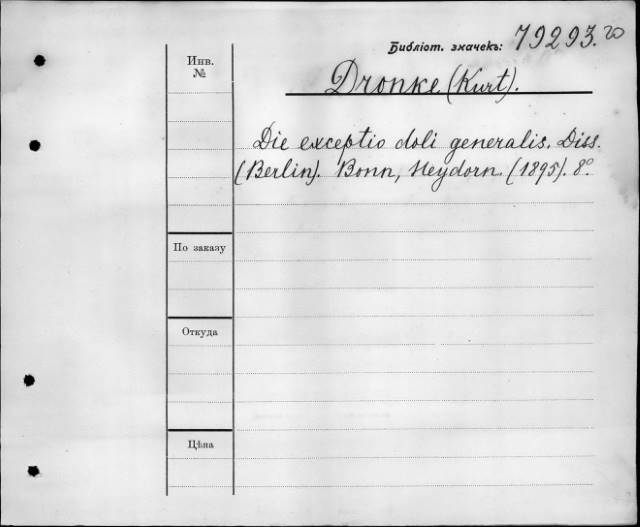 Библіот. значекъ: 79293.20
Инв.
№
Dronke (Kurt).
Die exceptio doli generalis. Diss.
(Berlin). Bonn, Heydorn. (1895). 8°.
По заказу
Откуда
Цѣна